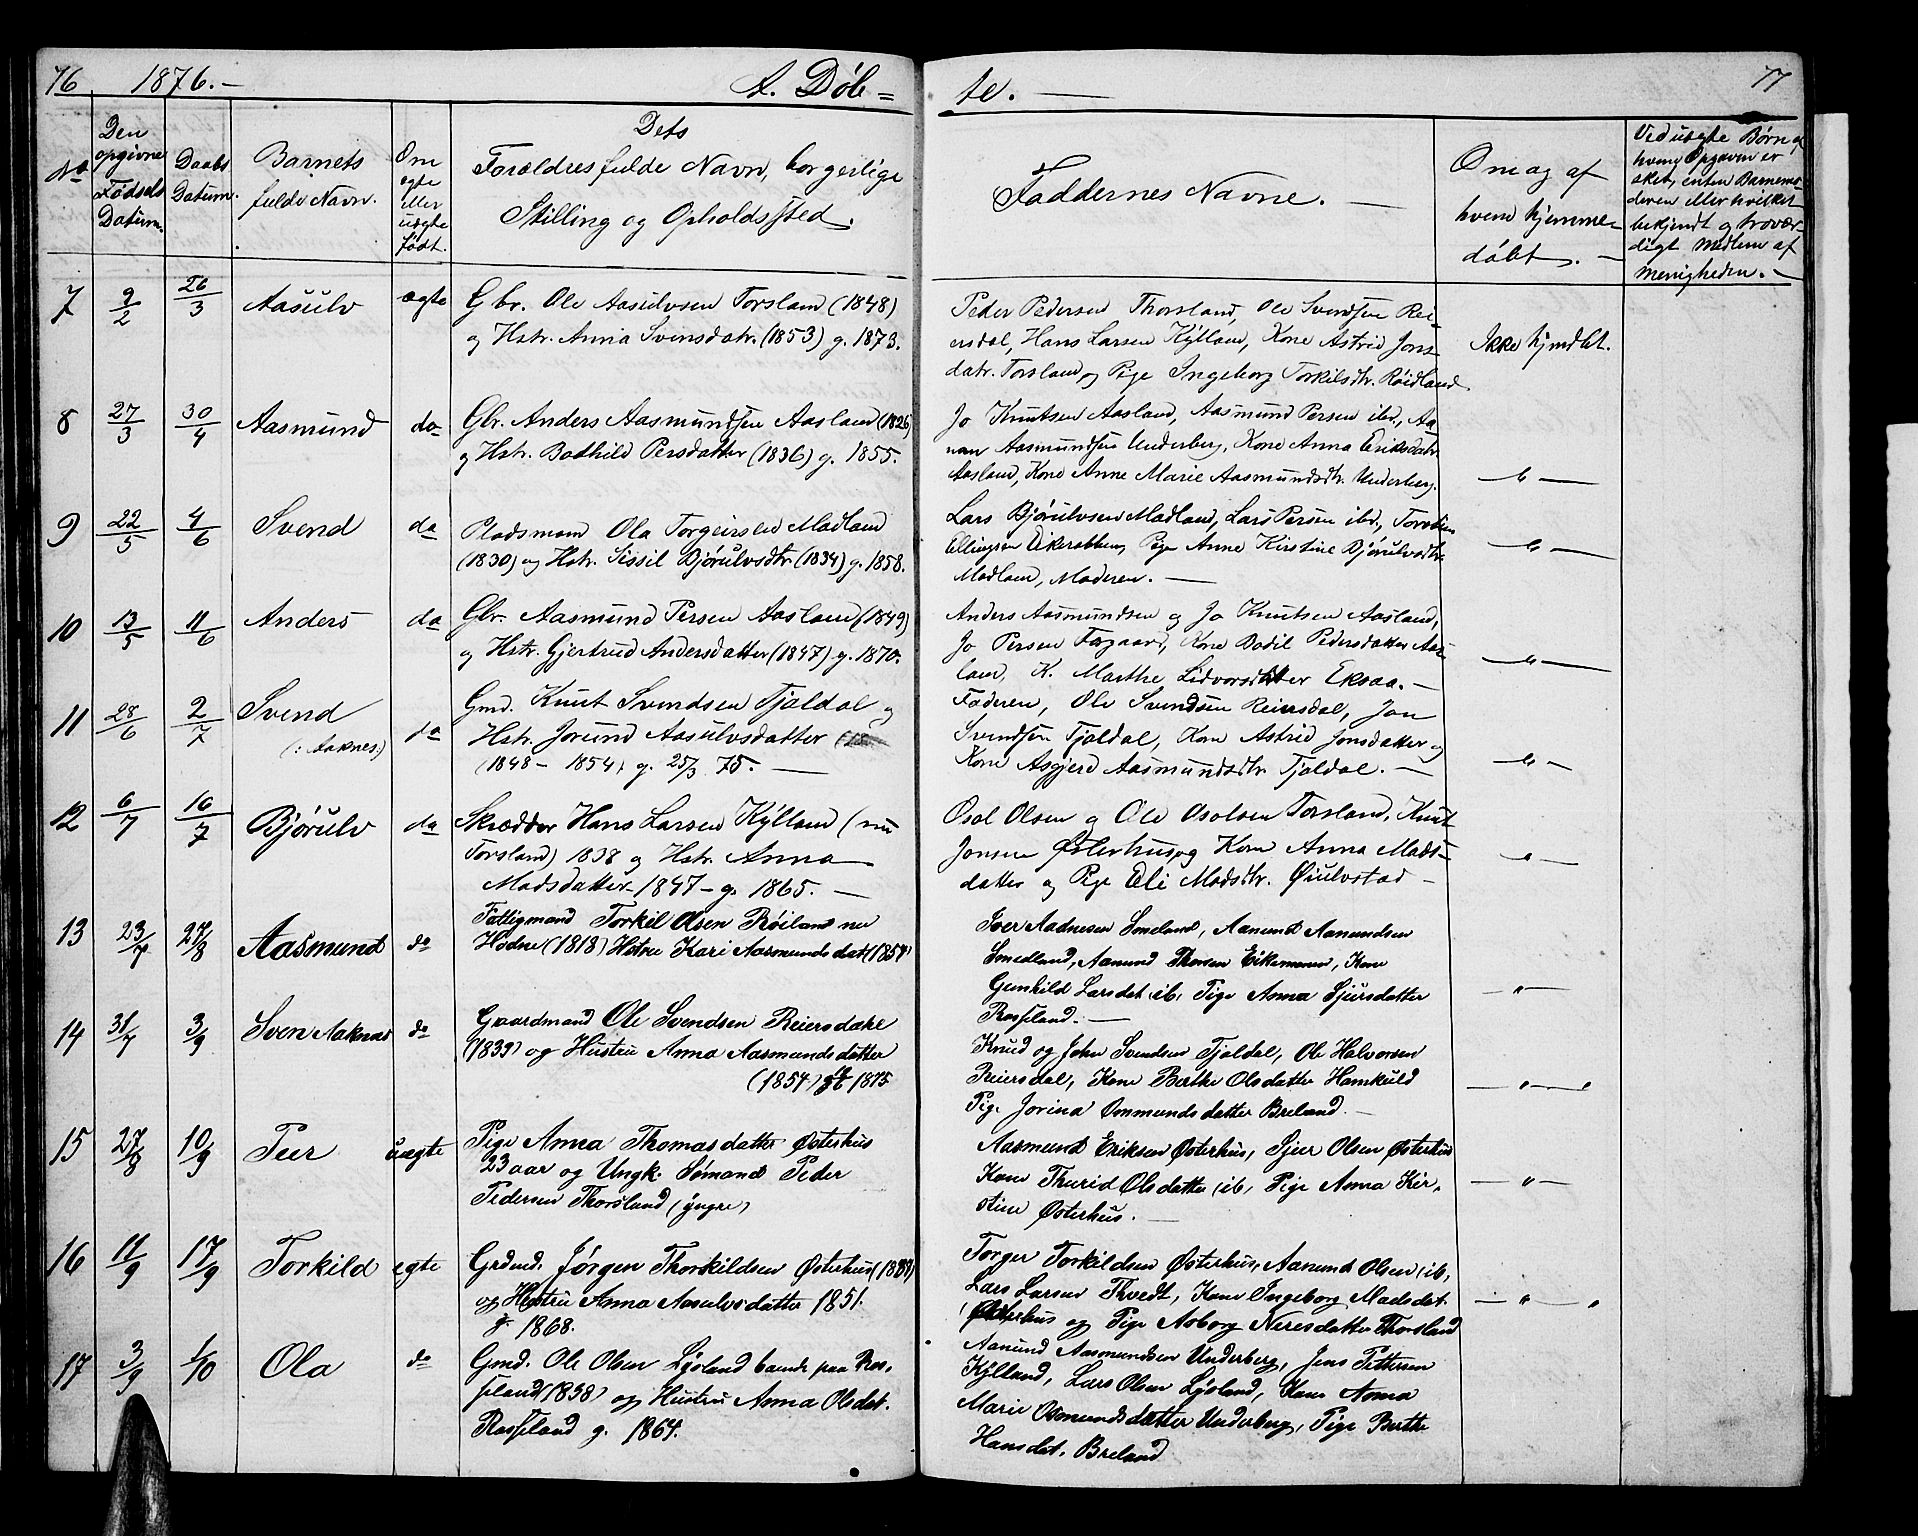 76 1876. — A. Døb=
te. — 77
No
Den opgivne Fødsels Datum.
Daabs Datum.
Barnets fulde Navn.
Om ægte eller uægte født.
Dets
Forældres fulde Navn, borgerlige
Stilling og Opholdssted.
Faddernes Navne. —
Om og af
hvem hjemme-
døbt. —
Ved uægte Børn,
hvem Opgaven er
sket, enten Barnemo-
deren eller hvilket
bekjendt og trovær-
digt Medlem af
Menigheden. —
7 9/2 26/3 Aasulv ægte Gbr. Ole Aasulvsen Torsland (1848)
og Hstr. Anna Svensdatr. (1853) g. 1873.
Peder Pedersen Thorsland, Ole Svendsen Rei-
ersdal, Hans Larsen Kylland, Kone Astrid Jons-
datr. Torsland og Pige Ingeborg Torkilsdtr. Røidland.
Ikke hjmdbt.
8 27/3 30/4 Aasmund do Gbr. Anders Aasmundsen Aasland (1826)
og Hstr. Bothild Persdatter (1836) g. 1855.
Jo Knutsen Aasland, Aasmund Persen ibr., Aa-
nun Aasmundsen Underberg, Kone Anna Eriksdatr.
Aasland, Kone Anne Marie Aasmundsdtr. Underberg.
— " —
9 22/5 4/6 Svend do Pladsmann Ola Torgeirsen Madland
(1830) og Hstr. Sissil Bjørulvsdtr. (1834) g. 1858.
Lars Bjørulvsen Madland, Lars Persen ibr.,
Ellingsen Pige Anne Kirstine Bjørulvsdtr.
Madland, Moderen. —
— " —
10 13/5 11/6 Anders do Gbr. Aasmund Persen Aasland (1849)
og Hstr. Gjertrud Andersdatter (1847) g. 1870.
Anders Aasmundsen og Jo Knutsen Aasland,
Jo Persen Fagaard, Kone Bodil Pedersdatter Aas-
land, K. Marthe Lidvorsdatter Eksaa. —
— " —
11 28/6 2/7 Svend
(: Aaknes:)
do Gmd. Knut Svendsen Tjaldal og
Hstr. Jorund Aasulvsdatter
(1848 – 1854) g. 25/3 75. —
Faderen, Ole Svendsen Reiersdal, Jon
Svendsen Tjaldal, Kone Astrid Jonsdatter og
Kone Asgjerd Aasmundsdtr. Tjaldal. —
— " —
12 6/7 16/7 Bjørulv do Skrædder Hans Larsen Kylland (nu
Torsland) 1838 og Hstr. Anna
Madsdatter 1847 – g. 1865. —
Osol Olsen og Ole Osolsen Torsland, Knut
Jonsen Østerhus, og Kone Anna Mads-
datter og Pige Eli Madsdtr. Øiulvstad —
— " —
13 23/7 27/8 Aasmund do Fattigmand Torkil Olsen Røiland nu
Hodne (1818) Hstru Kari Aasmundsdat (1854)
Iver Aadnesen Smeland, Aanund Aanundsen
Smedland, Aanund Thorsen Eikemoen, Kone
Gunhild Larsdat. ib, Pige Anna Sjursdatter
Rosseland. —
— " —
14 31/7 3/9 Sven Aaknas do Gaardmand Ole Svendsen Reiersdahl
(1839) og Hustru Anna Aasmundsdatter
(1854) 1875
Knud og John Svendsen Tjaldal, Ole Halvorsen
Reiersdal, Kone Berthe Olsdatter Homkuld
Pige Jorina Ommundsdatter Breland. —
— " —
15 27/8 10/9 Peer uægte Pige Anna Thomasdatter Østerhus
23 aar og Ungk. Sømand Peder
Pedersen Thorsland (yngre)
Aasmund Eriksen Østerhus, Sjur Olsen Østerhus
Kone Thurid Olsdatter ib, Pige Anna Kir-
stine Østerhus. —
— " —
16 11/9 17/9 Torkild egte Grdmd. Jørgen Thorkildsen Østerhus
og Hustru Anna Aasulvsdatter 1851.
g. 1868.
Torger Torkildsen Østerhus, Aanund Olsen ib,
Lars Larsen Thvedt, Kone Ingeborg Madsdat.
Østerhus og Pige Aaborg Neresdatter Thorsland
— " — "
17 3/9 1/10 Ola do Gmd. Ole Olsen Lysland boende paa Ros-
seland (1838) og Hustru Anna Olsdat.
Rosseland g. 1864.
Aanund Aasmundsen Underberg, Jens Pettersen
Kylland, Lars Olsen Lysland, Kone Anna
Marie Osmundsdatter Underberg, Pige Berthe
Hansdat. Breland